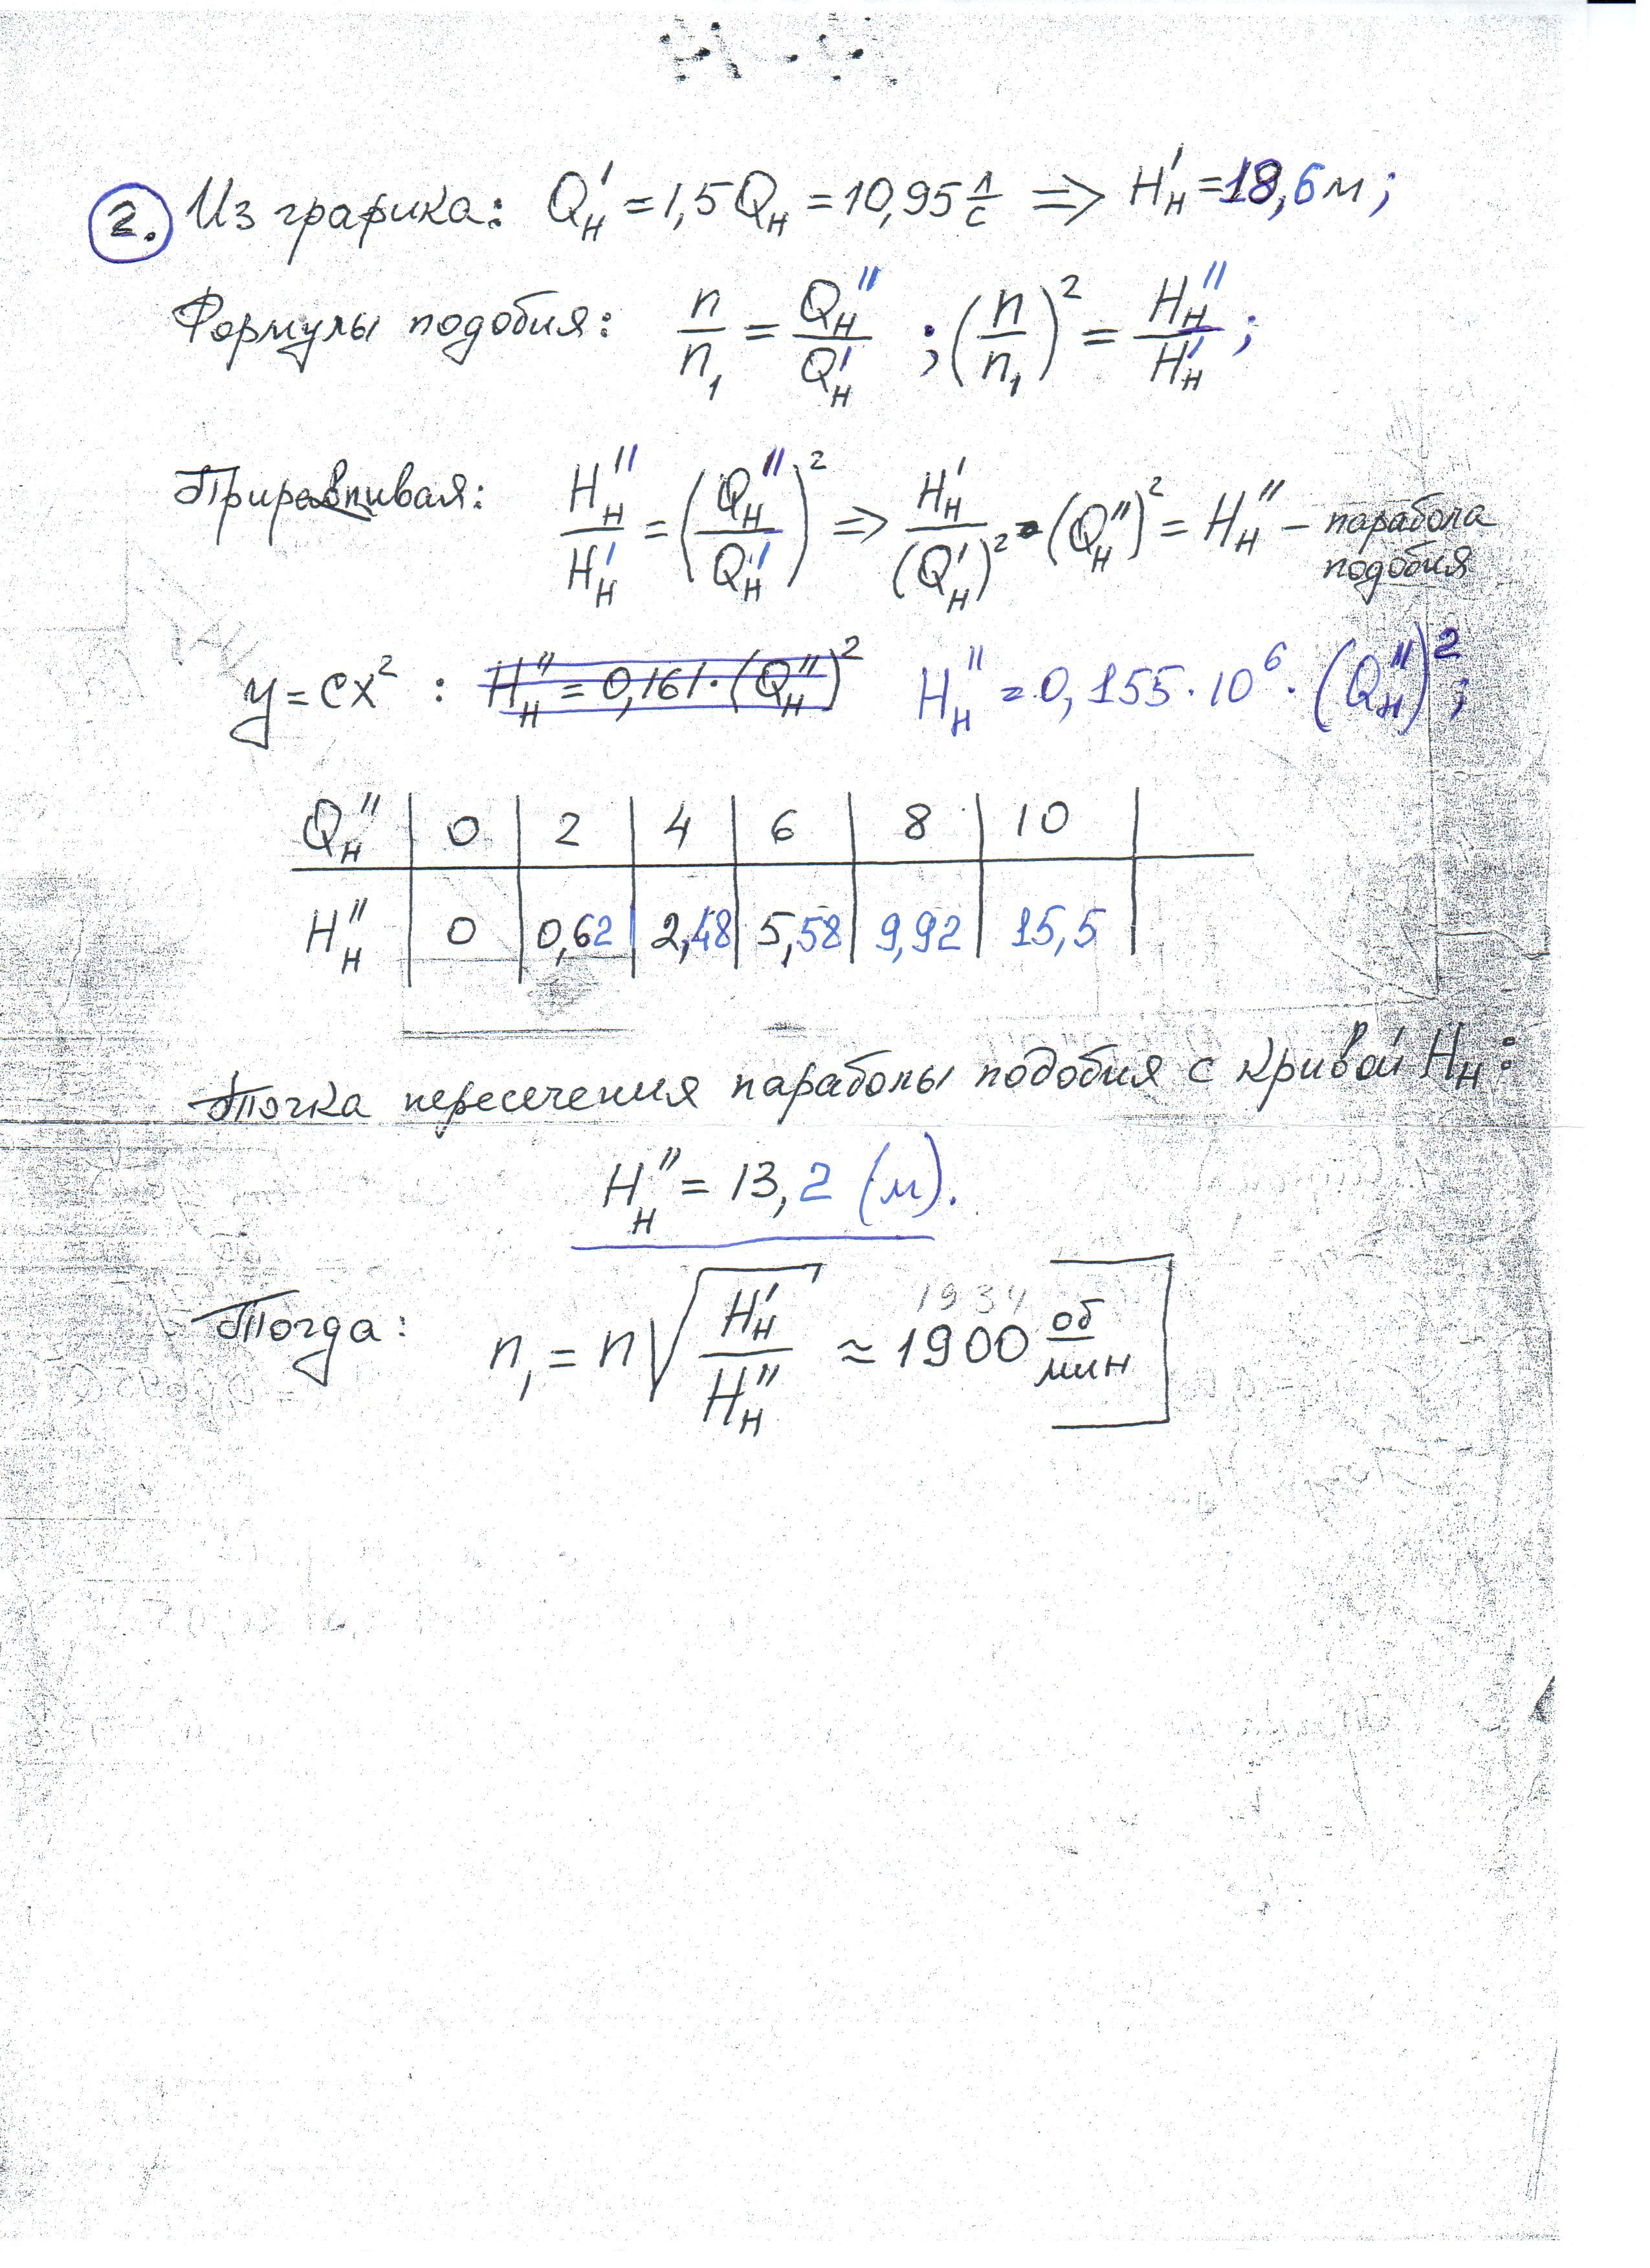 2. Из графика: Qн' = 1,5Qн = 10,95 л/с ⇒ Hн' = 18,6м;
Формулы подобия: n/n₁ = Qн''/Qн' ; (n/n₁)² = Hн''/Hн' ;
Приравнивая: Hн''/Hн' = (Qн''/Qн')² ⇒ Hн'/(Qн')² · (Qн'')² = Hн'' – парабола
подобия
y = cx² : Hн'' = 0,161·(Qн'')² Hн'' = 0,155·10⁶·(Qн'')² ;
Qн'' | 0 | 2 | 4 | 6 | 8 | 10 |
Hн'' | 0 | 0,62 | 2,48 | 5,58 | 9,92 | 15,5 |
Точка пересечения параболы подобия с кривой Hн:
Hн'' = 13,2 (м).
1934
Тогда: n₁ = n√(Hн'/Hн'') ≈ 1900 об/мин